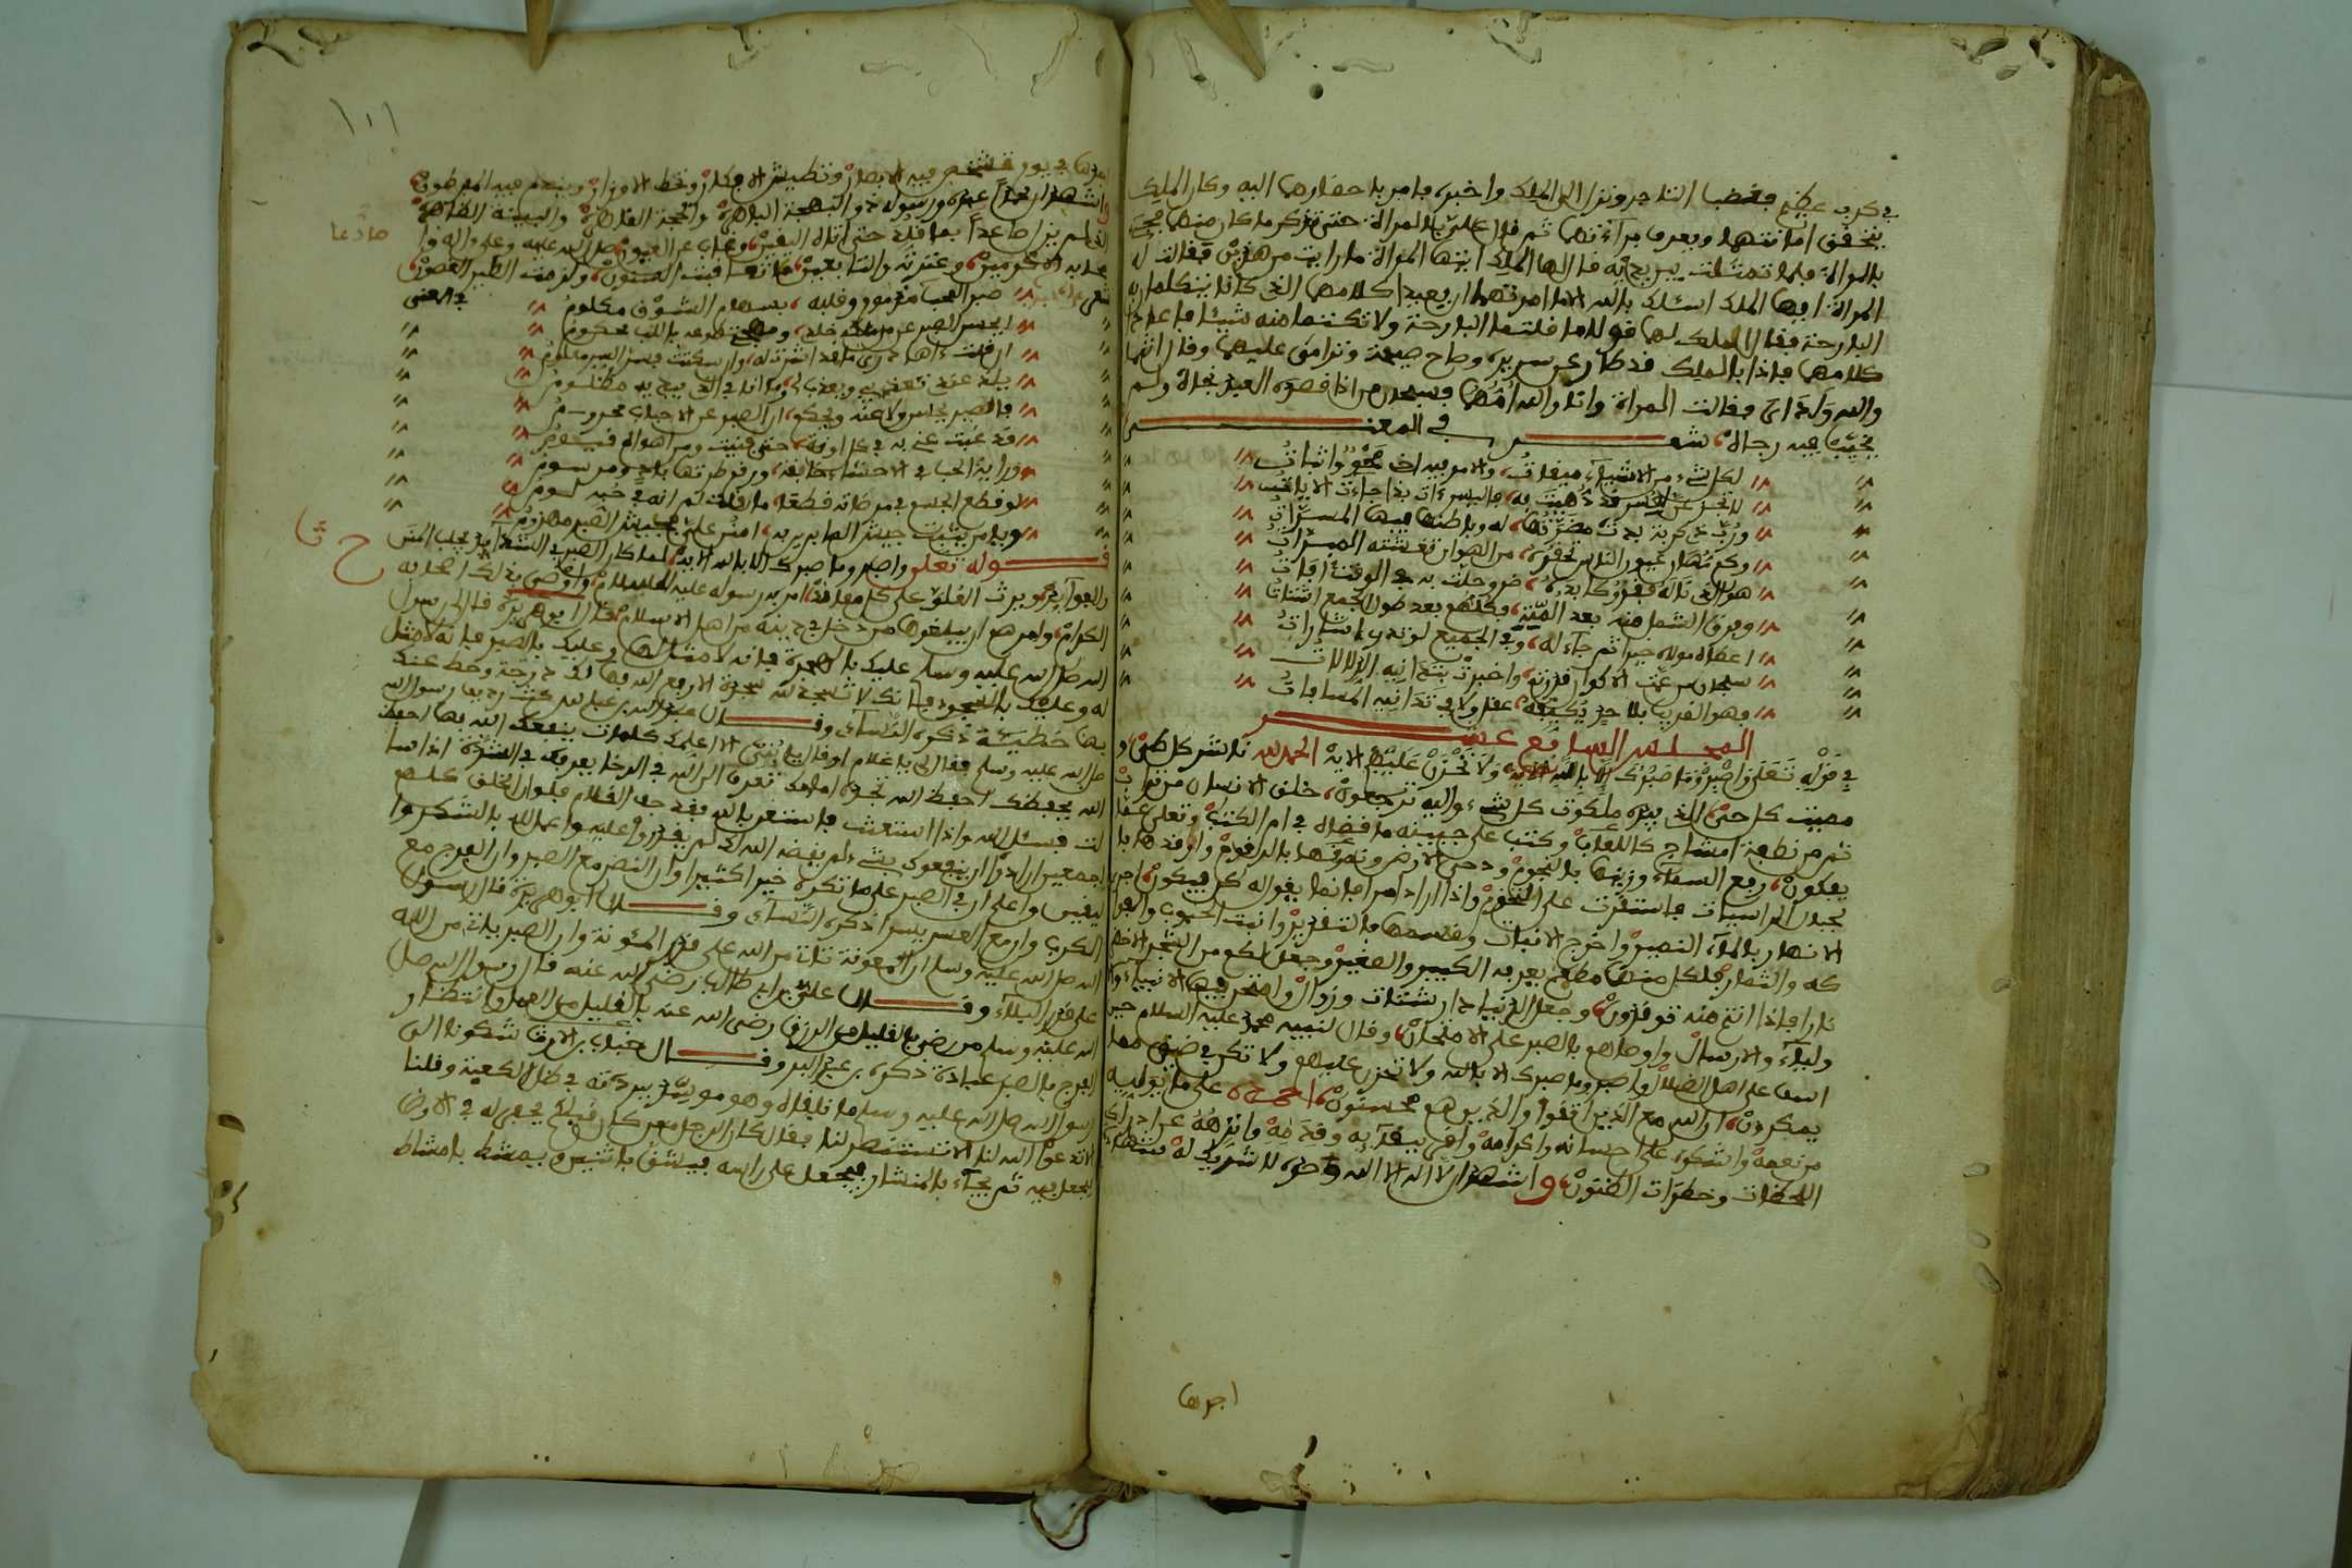 في كرب عظيم فغضب التاجر ونزل الى الملك واخبره فامر باحضارها اليه وكان الملك
يتحقق امانتهما ويعرف براءتهما ثم قال علي بالمراة حتى تذكر ما كان منهما فجيء
بالمراة فلما تمثلت بين يديه قال لها الملك ايتها المراة ما رايت من هذين فقالت له
المراة ايها الملك اسئلك بالله الا ما امرتهما ان يعيدا كلامهما الذي كانا يتكلمان به
البارحة فقال الملك لهما قولا ما قلتما البارحة ولا تكتما منه شيئا فاعادا
كلامهما فاذا بالملك قد طار عن سريره وصاح صيحة وترامى عليهما وقال انتما
والله ولداي فقالت المراة وانا والله امهما فسبحان من اذا قصده العبد نجاه ولم
يخيب فيه رجاه شعر في المعنى
لكل شيء من الاشياء ميقات والامر فيه اخي محو واثبات
لا تجزعن لعسر قد دهيت به فاليسر ءات بذا جاءت الايات
ورب ذي كربة بدت مضرتها له وباطنها فيها المسرات
وكم مهان عيون الناس تحقره من الهوان تغشته المبرات
هذا الذي ناله فقر وكابده ضر وحلت به في الوقت افات
وفرق الشمل منه بعد ... فكلهم بعد طول الجمع اشتات
اعطاه مولاه خيرا ثم جاء له وفي الجميع لوندري اشارات
سبحان من عمت الاكوان قدرته واخبرت بتدانيه الدلالات
وهو القريب بلا حد يكيفه عقل ولا في تدانيه المسافات
المجلس السابع عشر
في قوله تعلى واصبر وما صبرك الا بالله ولا تحزن عليهم الاية الحمد لله ناشر كل طي و
مميت كل حي الذي بيده ملكوت كل شيء واليه ترجعون خلق الانسان من تراب
ثم من نطفة امشاج كاللعاب وكتب على جبينه ما قضاه في ام الكتب وتعلى عما
يعكون رفع السماء وزينها بالنجوم ودحى الارض ونمقها بالرقوم واوقدها با
لجبال الراسيات فاستقرت على التخوم واذا اراد امرا فانما يقول له كن فيكون اجرى
الانهار بالماء النمير واخرج الانبات وقسمها بالتقدير وانبت الحبوب والفوا
كه والثمار فلكل منها مطعم يعرفه الكبير والصغير وجعل لكم من الشجر الاخضر
نارا فاذا انتم منه توقدون وجعل الدنيا دار شتات وزوال وامتحن فيها الانبياء والا
ولياء والارسال واوصاهم بالصبر على الامتحان وقال لنبيه محمد عليه السلام حين
اسف على اهل الضلال واصبر وما صبرك الا بالله ولا تحزن عليهم ولا تك في ضيق مما
يمكرون ان الله مع الذين اتقوا والذين هم محسنون احمده على ما يوليه
من نعمه واشكره على احسانه واكرامه واهي ببقآيه وقدمه وانزهه عن ادراك
اللحظات وخطرات الظنون واشهد ان لا اله الا الله وحده لا شريك له شهادة
اجدها

١٠١
اجدها في يوم تشخص فيه الابصار وتطيش الافكار وتحط الاوزار ويندم فيه المفرطون
واشهد ان محمدا عبده ورسوله ذو البهجة الباهرة والحجة القاهرة والبينة الظاهرة
الذي لم يزل صادعا بما قلد حتى اتاه اليقين وغاب عن العيون صلى الله عليه وعلى اله وا
صادعا
صحابه الاكرمين وعترته والتابعين ما تعاقبت السنون ولزمت الطير الغصون
شعر صبر المحب مذموم وقلبه بسهام الشوق مكلوم في المعنى
ايحسن الصبر عمن ... خلدي ومهجتي طوعه بالحب محكوم
ان قلت ءاها درى ما قد اشرت له وان سكت فسر السر معلوم
يلذ عندي تعذيبي ويعذب لي وما انا في الذي يبديه مظلوم
فالصبر يحسن ولا عنه ويحكم ان الصبر عن الاحباب محروم
قد غبت عني به في كل اونة حتى فنيت ومن اهواه قيوم
وراية الحب في الاحشاء خافقة ورقم طرتها بالوجد مرسوم
لو قطع الجسم في مرضاته قطعا ما قلت ثم انه في حبه لوم
ويا من يثبت جيش الصابرين به امنن علي فجيش الصبر مهزوم
قوله تعلى واصبر وما صبرك الا بالله الاية لما كان الصبر في الشدايد يجلب المنن
ح ثا
والفوائد ويرث العلو على كل معاند امر به رسوله عليه السلام واوصى بذلك اصحابه
الكرام وامرهم ان يبلغوها من دخل في دينه من اهل الاسلام قال ابو هريرة قال لي رسول
الله صلى الله عليه وسلم عليك بالهجرة فانه لا مثل لها وعليك بالصبر فانه لا مثل
له وعليك بالسجود فانك لا تسجد لله سجدة الا رفع الله بها لك درجة وحط عنك
بها خطيئة ذكره النسآئي وقال عبد الله بن عباس كنت رديف رسول الله
صلى الله عليه وسلم فقال لي يا غلام او قال يا بني الا اعلمك كلمات ينفعك الله بها احفظ
الله يحفظك احفظ الله تجده امامك تعرف الى الله في الرخا يعرفك في الشدة اذا سا
لت فسئل الله واذا استعنت فاستعن بالله فقد جف القلم فلو ان الخلق كلهم
اجمعين ارادوا ان ينفعوك بشيء لم يقضه الله لك لم يقدروا عليه واعمل لله بالشكر وا
ليقين واعلم ان في الصبر على ما تكره خيرا كثيرا وان النصر مع الصبر وان الفرج مع
الكرب وان مع العسر يسرا ذكره النسآئي وقال ابو هريرة قال رسول
الله صلى الله عليه وسلم ان المعونة تات من الله على قدر المئونة وان الصبر يات من الله
على قدر البلاء وقال علي بن ابي طالب رضي الله عنه قال رسول الله صلى
الله عليه وسلم من رضي بالقليل من الرزق رضي الله عنه بالقليل من العمل وانتظار
الفرج بالصبر عبادة ذكره بن عبد البر وقال خباب بن الارت شكونا الى
رسول الله صلى الله عليه وسلم ما نلقاه وهو موسد ببردته في ظل الكعبة وقلنا
الا تدعوا الله لنا الا تستنصر لنا فقال كان الرجل ممن كان قبلكم يحفر له في الارض
فيجعل فيه ثم يجآء بالمنشار فيجعل على راسه فيشق باثنين و يمشط بامشاط